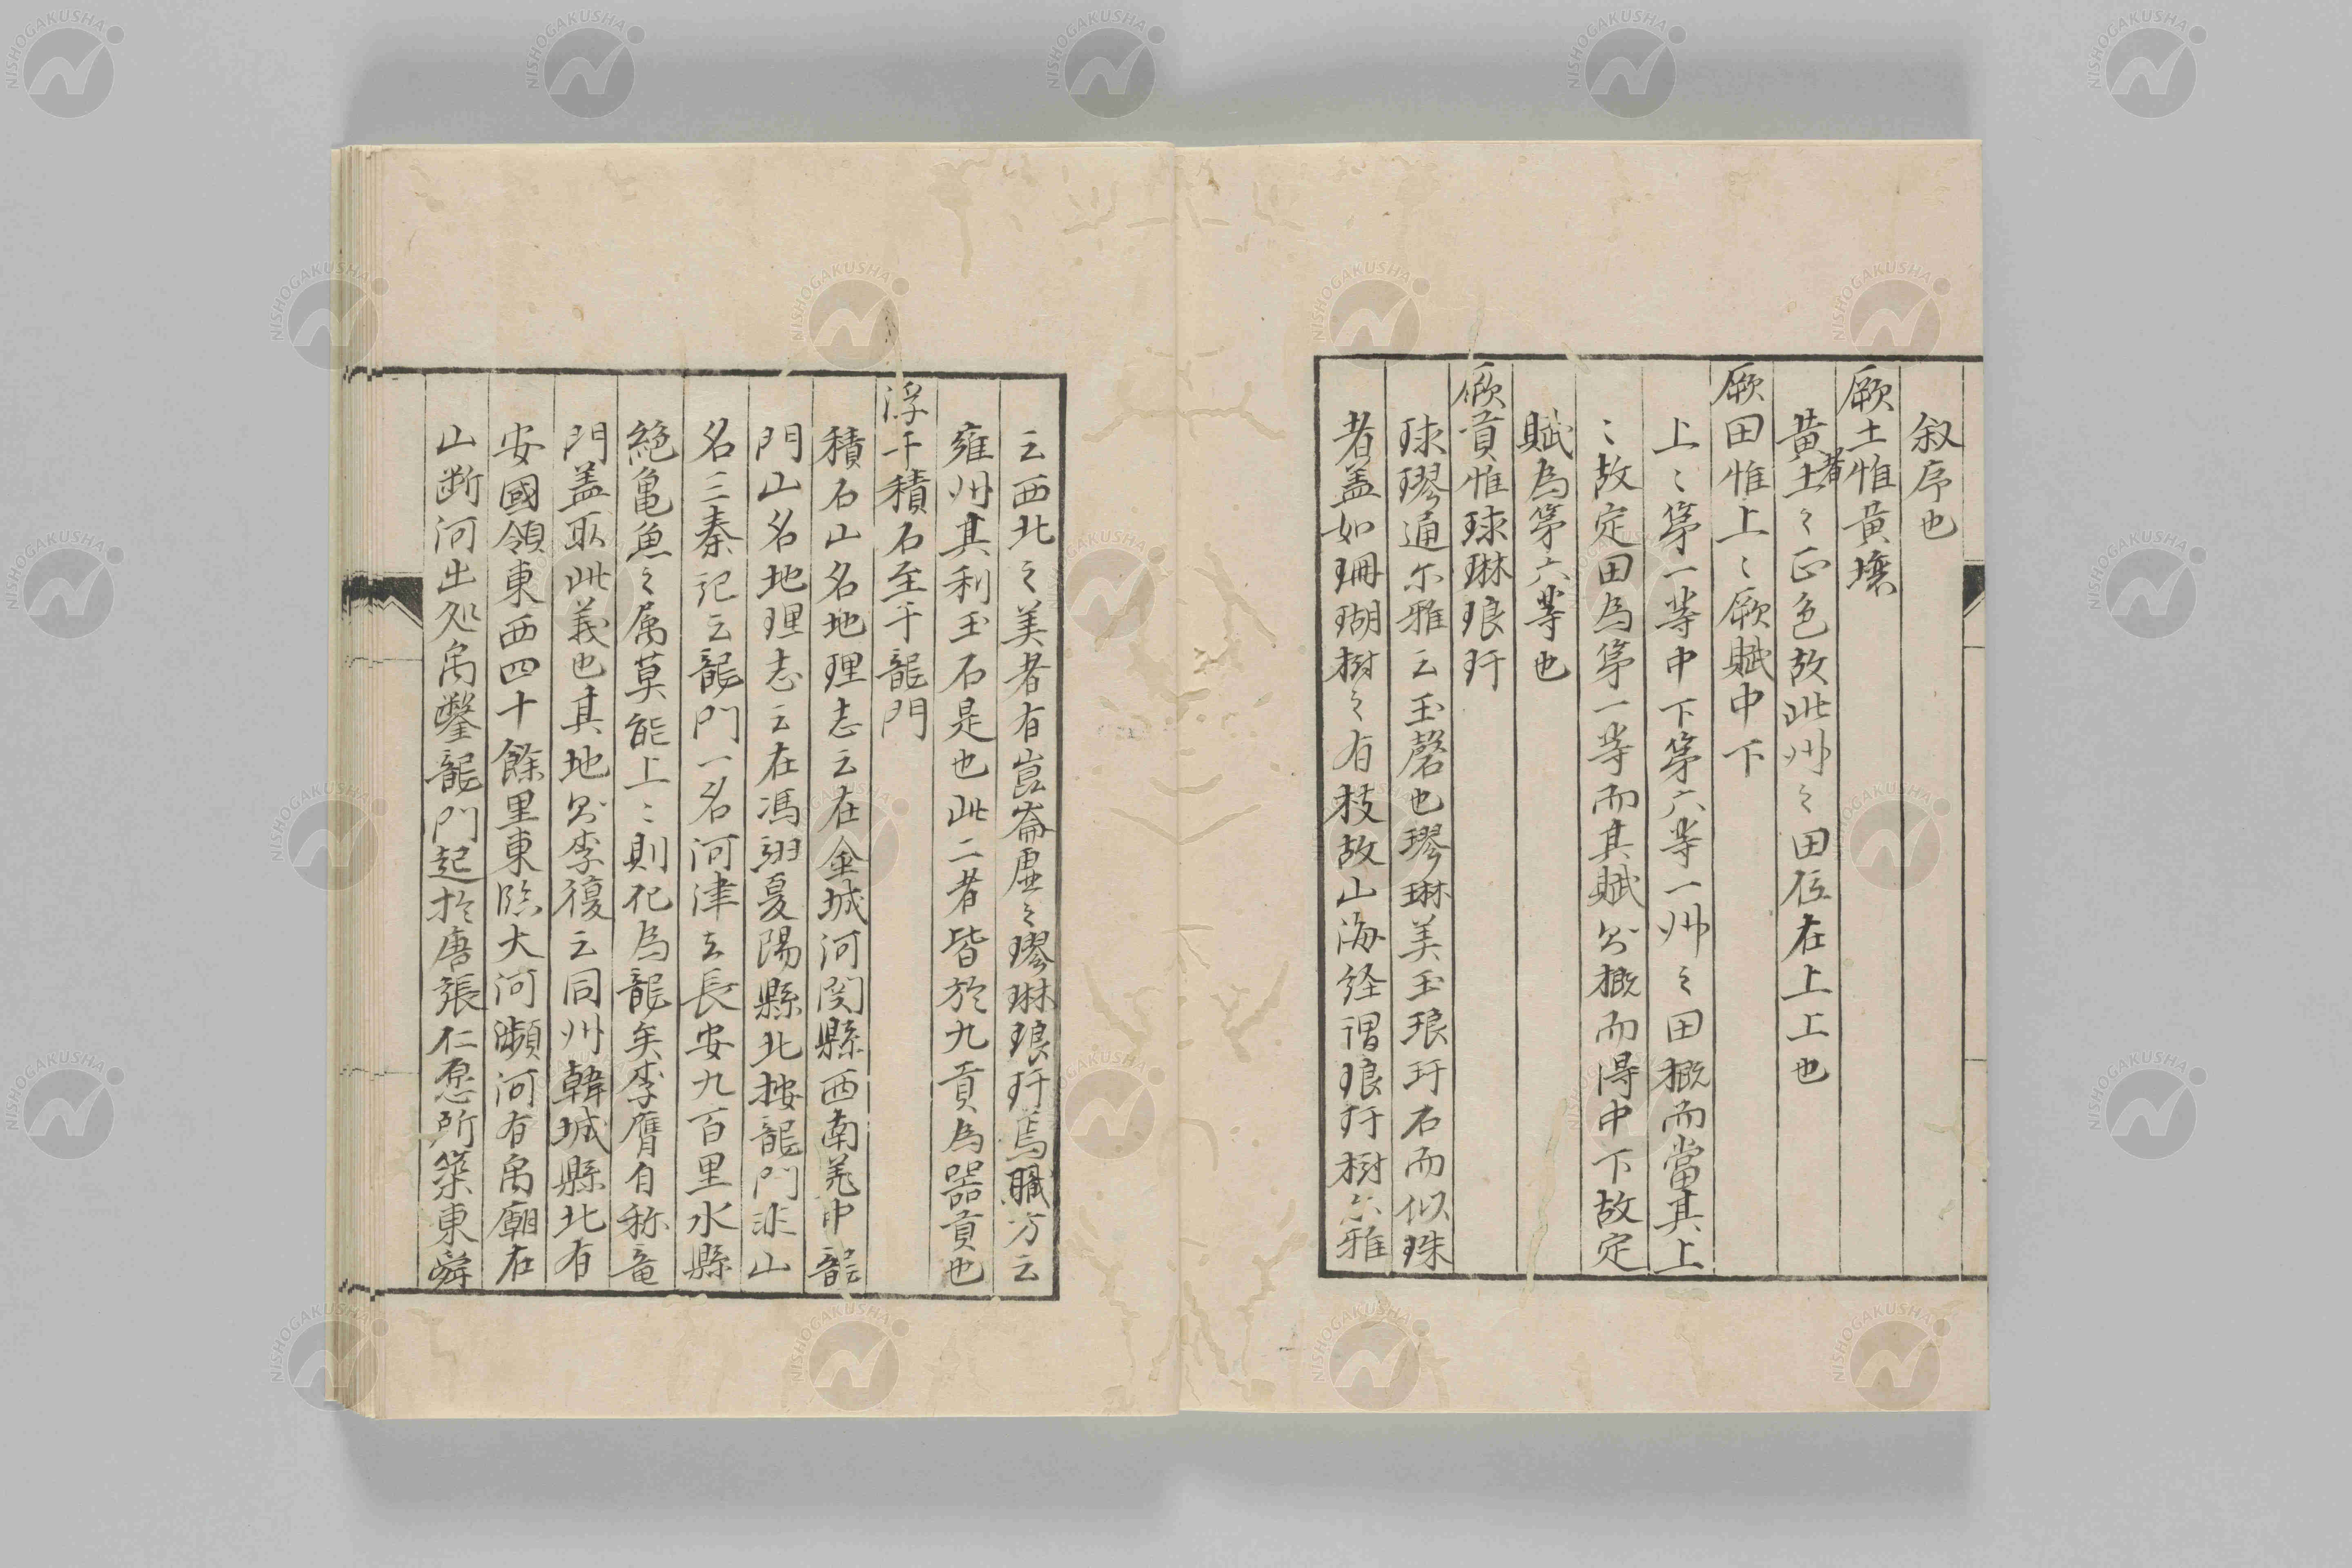 叙序也
厥土惟黄壤
黄土者〻正色故此州之田位在上上也
厥田惟上〻厥賦中下
上〻第一等中下第六等一州之田概而當其上
〻故定田爲第一等而其賦則概而得中下故定
賦爲第六等也
厥貢惟球琳琅玕
球璆通尓雅云玉磬也璆琳美玉琅玕石而似珠
者盖如珊瑚樹之有枝故山海経謂琅玕樹尓雅
云西北之美者有崑崙虚之璆琳琅玕焉職方云
雍州其利玉石是也此二者皆於九貢爲器貢也
浮于積石至于龍門
積石山名地理志云在金城河関縣西南羌中龍
門山名地理志云在馮翊夏陽縣北按龍門非山
名三秦記云龍門一名河津去長安九百里水縣
絶亀魚之属莫能上〻則化爲龍矣李膺自称竜
門盖取此義也其地則李復云同州韓城縣北有
安國領東西四十餘里東臨大河瀕河有禹廟在
山断河出処禹鑿龍門起於唐張仁愿所築東舜
NISHOGAKUSHA